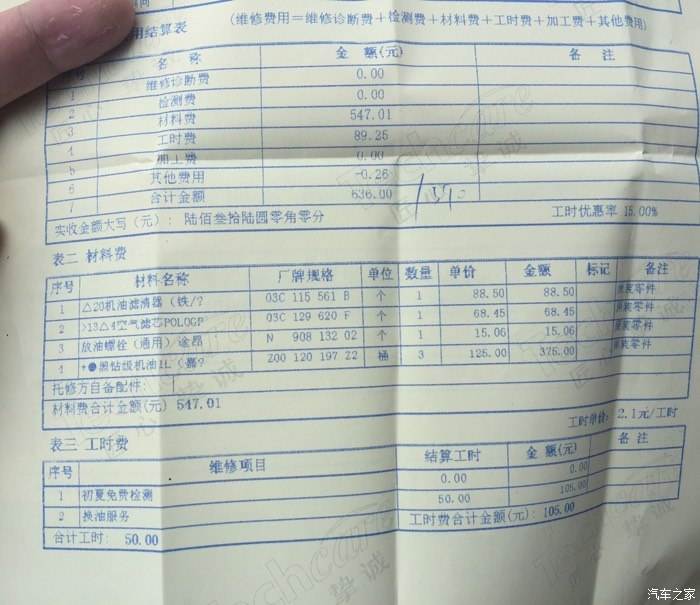 用结算表 (维修费用=维修诊断费+检测费+材料费+工时费+加工费+其他费用)
名 称 金 额(元) 备 注
1 维修诊断费 0.00
2 检测费 0.00
3 材料费 547.01
4 工时费 89.25
5 加工费 0.00
6 其他费用 -0.26
7 合计金额 636.00
实收金额大写(元): 陆佰叁拾陆圆零角零分 工时优惠率 15.00%
表二 材料费
序号 材料名称 厂牌规格 单位 数量 单价 金额 标记 备注
1 △20机油滤清器(铁/? 03C 115 561 B 个 1 88.50 88.50 原装零件
2 >13△4空气滤芯POLOGP 03C 129 620 F 个 1 68.45 68.45 原装零件
3 放油螺栓(通用)途昂 N 908 132 02 个 1 15.06 15.06 原装零件
4 +●黑钻级机油1L(嘉? Z00 120 197 Z2 桶 3 125.00 375.00 原装零件
托修方自备配件:
材料费合计金额(元) 547.01
工时单价: 2.1元/工时
表三 工时费
序号 维修项目 结算工时 金 额(元) 备 注
1 初夏免费检测 0.00 0.00
2 换油服务 50.00 105.00
合计工时: 50.00 工时费合计金额(元): 105.00
Techcare
匠心挚诚
汽车之家